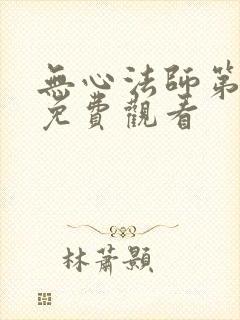 無心法師第
免費觀看
林蕭顥